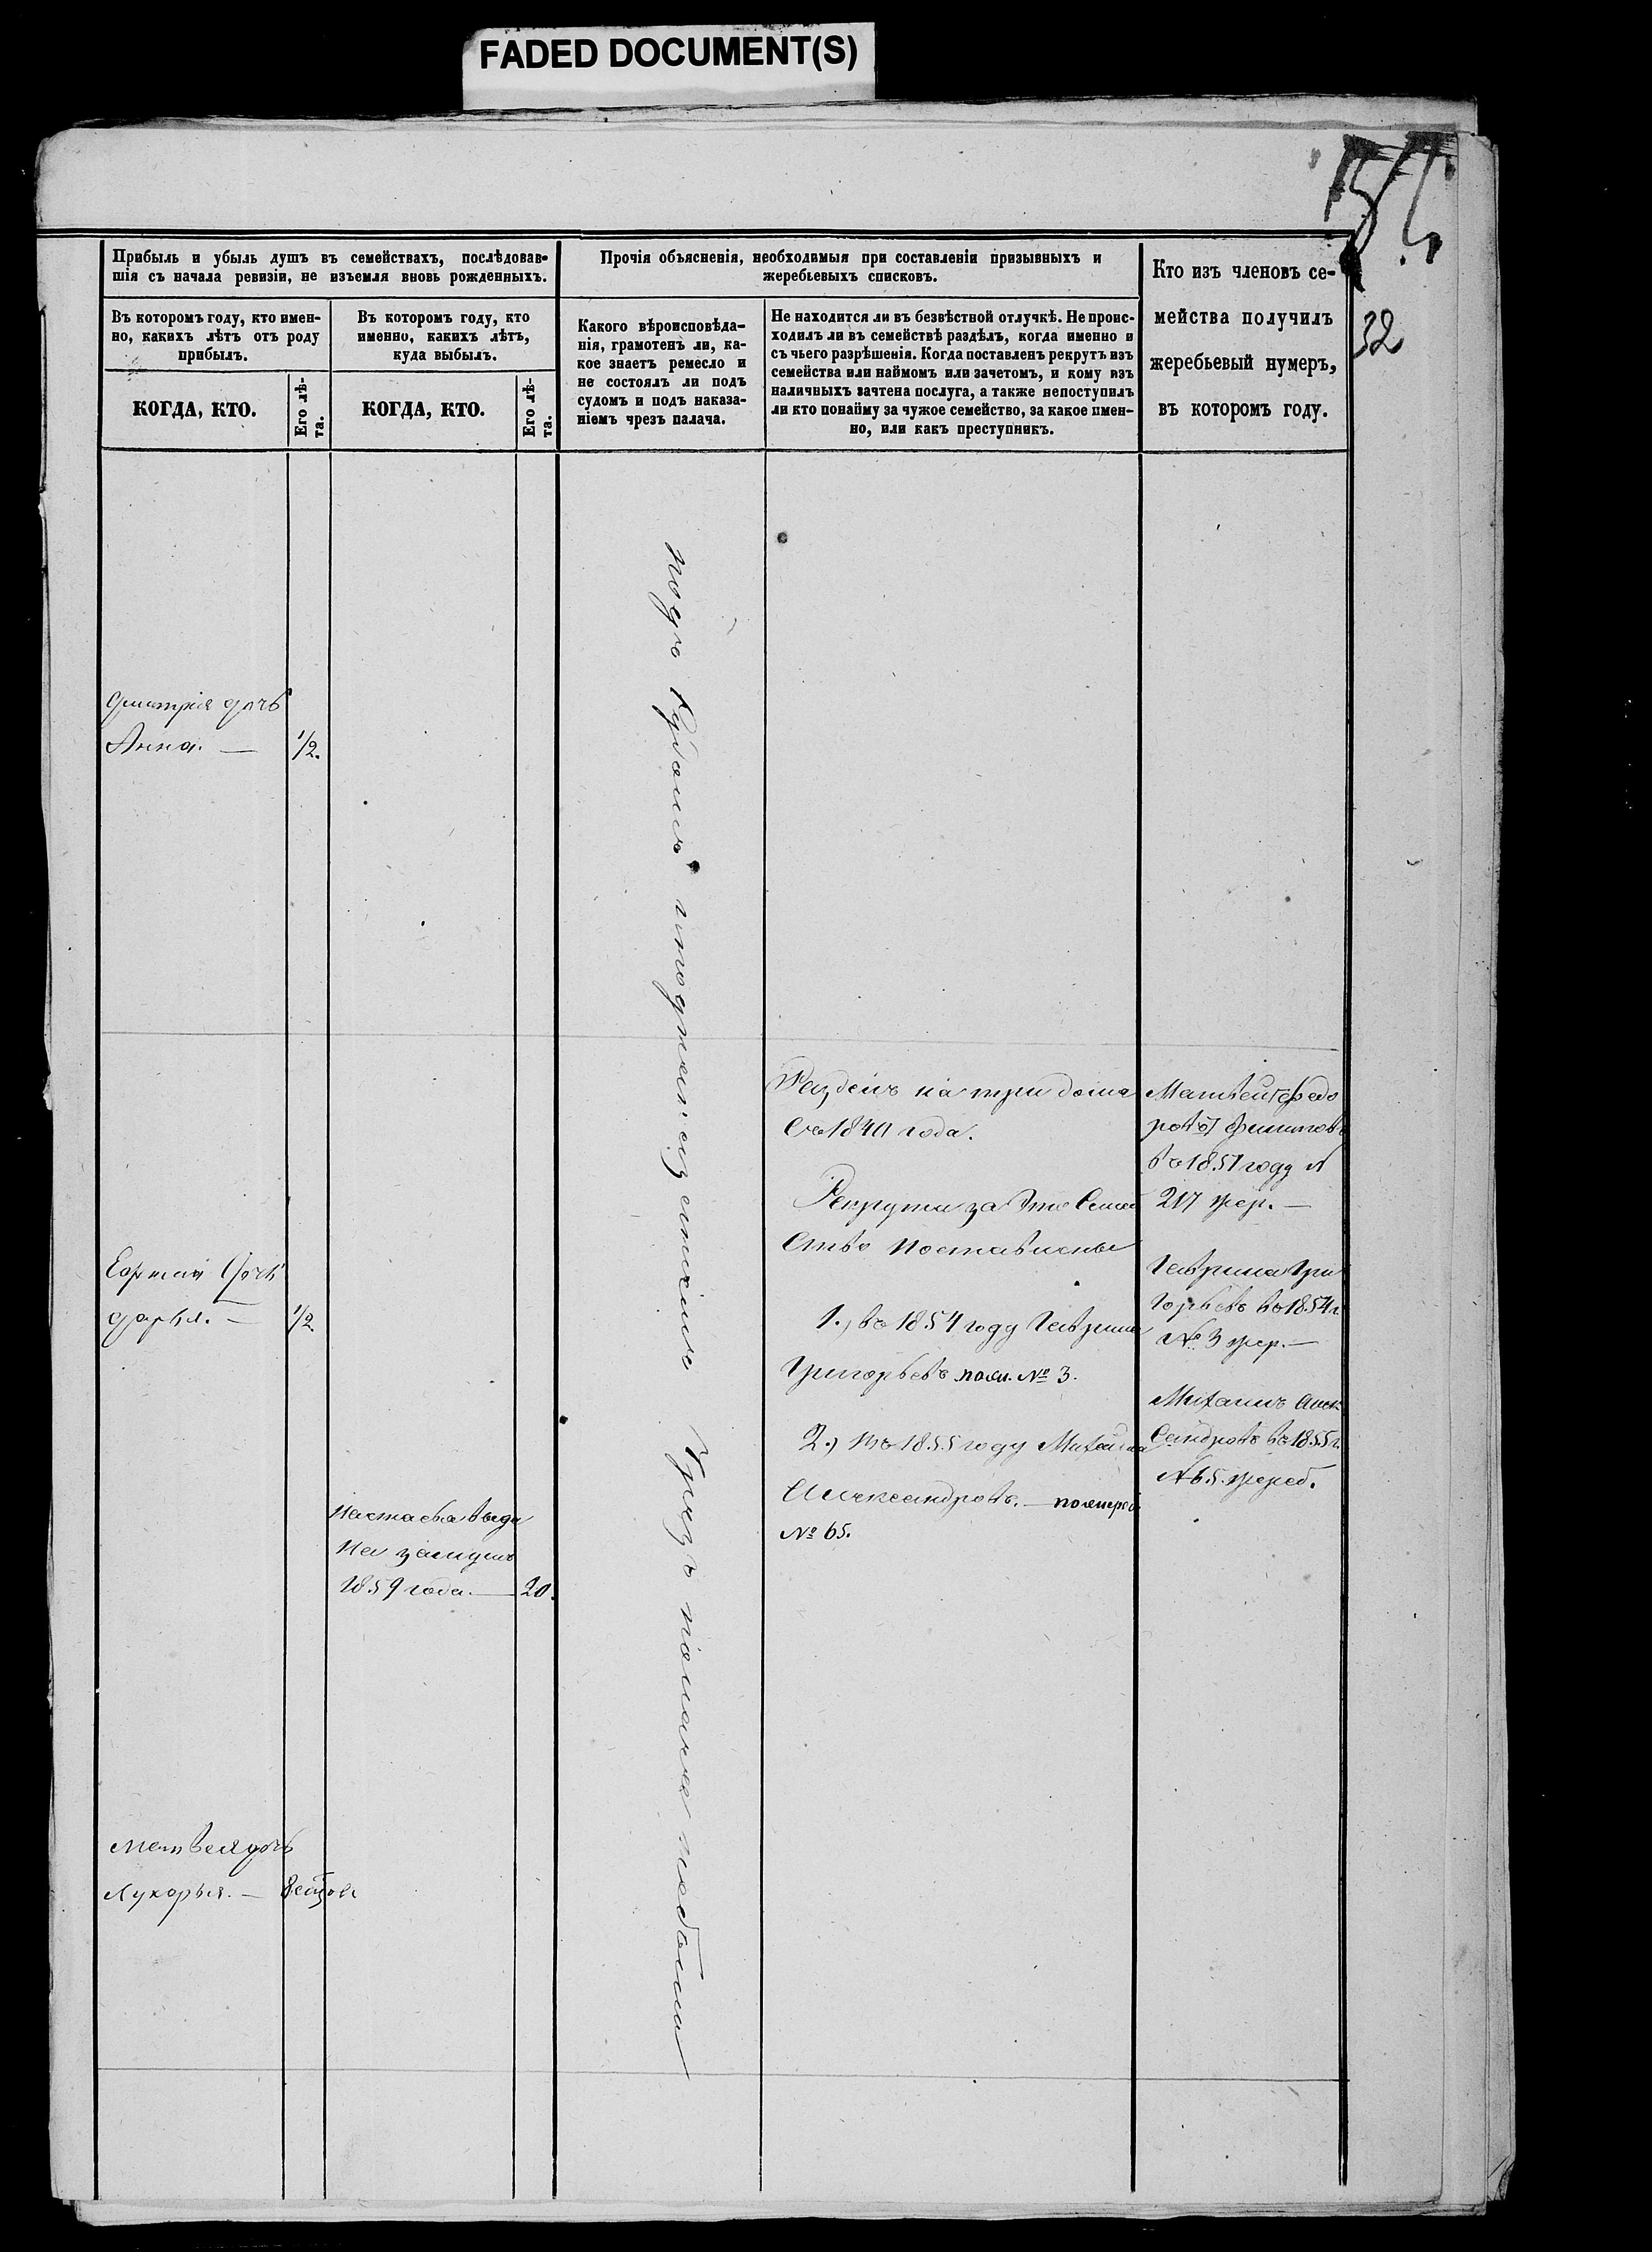 FADED DOCUMENT(S)
32
Прибыль и убыль душъ въ семействахъ, послѣдовав-
шія съ начала ревизіи, не изъемля вновь рожденныхъ.
Въ которомъ году, кто имен-
но, какихъ лѣтъ отъ роду
прибылъ.
КОГДА, КТО.
Его лѣ-
та.
Въ которомъ году, кто
именно, какихъ лѣтъ,
куда выбылъ.
КОГДА, КТО.
Его лѣ-
та.
Прочія объясненія, необходимыя при составленіи призывныхъ и
жеребьевыхъ списковъ.
Какого вѣроисповѣда-
нія, грамотенъ ли, ка-
кое знаетъ ремесло и
не состоялъ ли подъ
судомъ и подъ наказа-
ніемъ чрезъ палача.
Не находится ли въ безвѣстной отлучкѣ. Не проис-
ходилъ ли въ семействѣ раздѣлъ, когда именно и
съ чьего разрѣшенія. Когда поставленъ рекрутъ изъ
семейства или наймомъ или зачетомъ, и кому изъ
наличныхъ зачтена послуга, а также непоступилъ
ли кто понайму за чужое семейство, за какое имен-
но, или какъ преступникъ.
Кто изъ членовъ се-
мейства получилъ
жеребьевый нумеръ,
въ которомъ году.
Дмитрія дочь
Анна. — 1/2.
дочь
Дарья. — 1/2
выда
на замужъ
1859 года. — 20.
Матвея дочь
Лукерья. —
подъ судомъ и подъ наказаніемъ чрезъ палача небыли
Раздѣлъ на три дома
съ 1840 года.
Рекрута за это Семей
Ство поставлены
1., въ 1854 году Гаврила
Григорьевъ пожи. № 3.
2., въ 1855 году Михаила
Александровъ. —
№ 65.
Матвей Федо
ровъ
въ 1851 году №
217 жер. —
Гаврила Гри
горьевъ въ 1854 г
№ 3 жер. —
Михаилъ Алек
Сандровъ въ 1855 г.
№ 65. жереб.